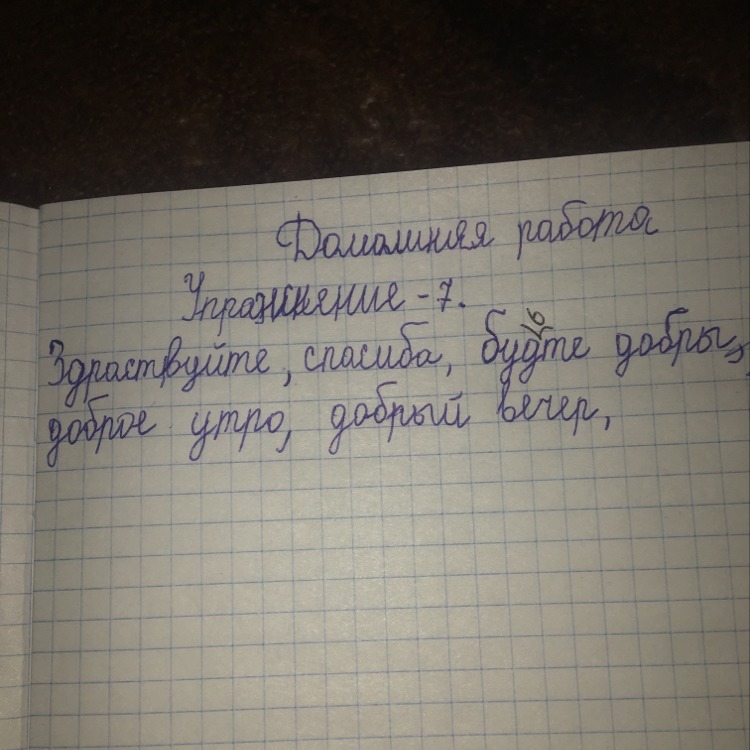 Домашняя работа
Упражнение - 7.
Здраствуйте, спасиба, будьте добры,
доброе утро, добрый вечер,